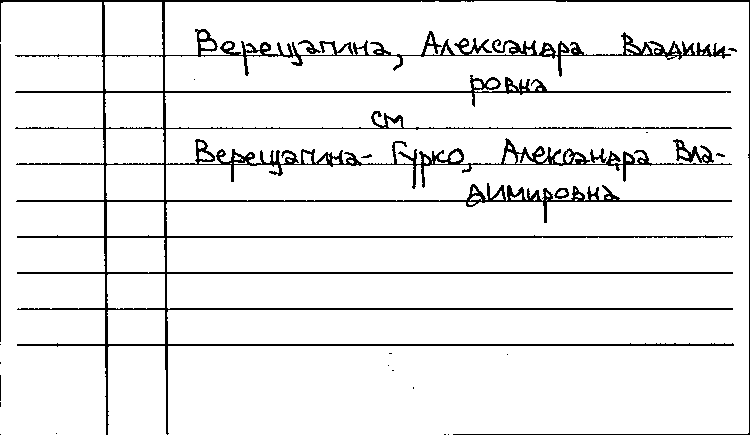 Верещагина, Александра Владими-
ровна
см
Верещагина-Гурко, Александра Вла-
димировна